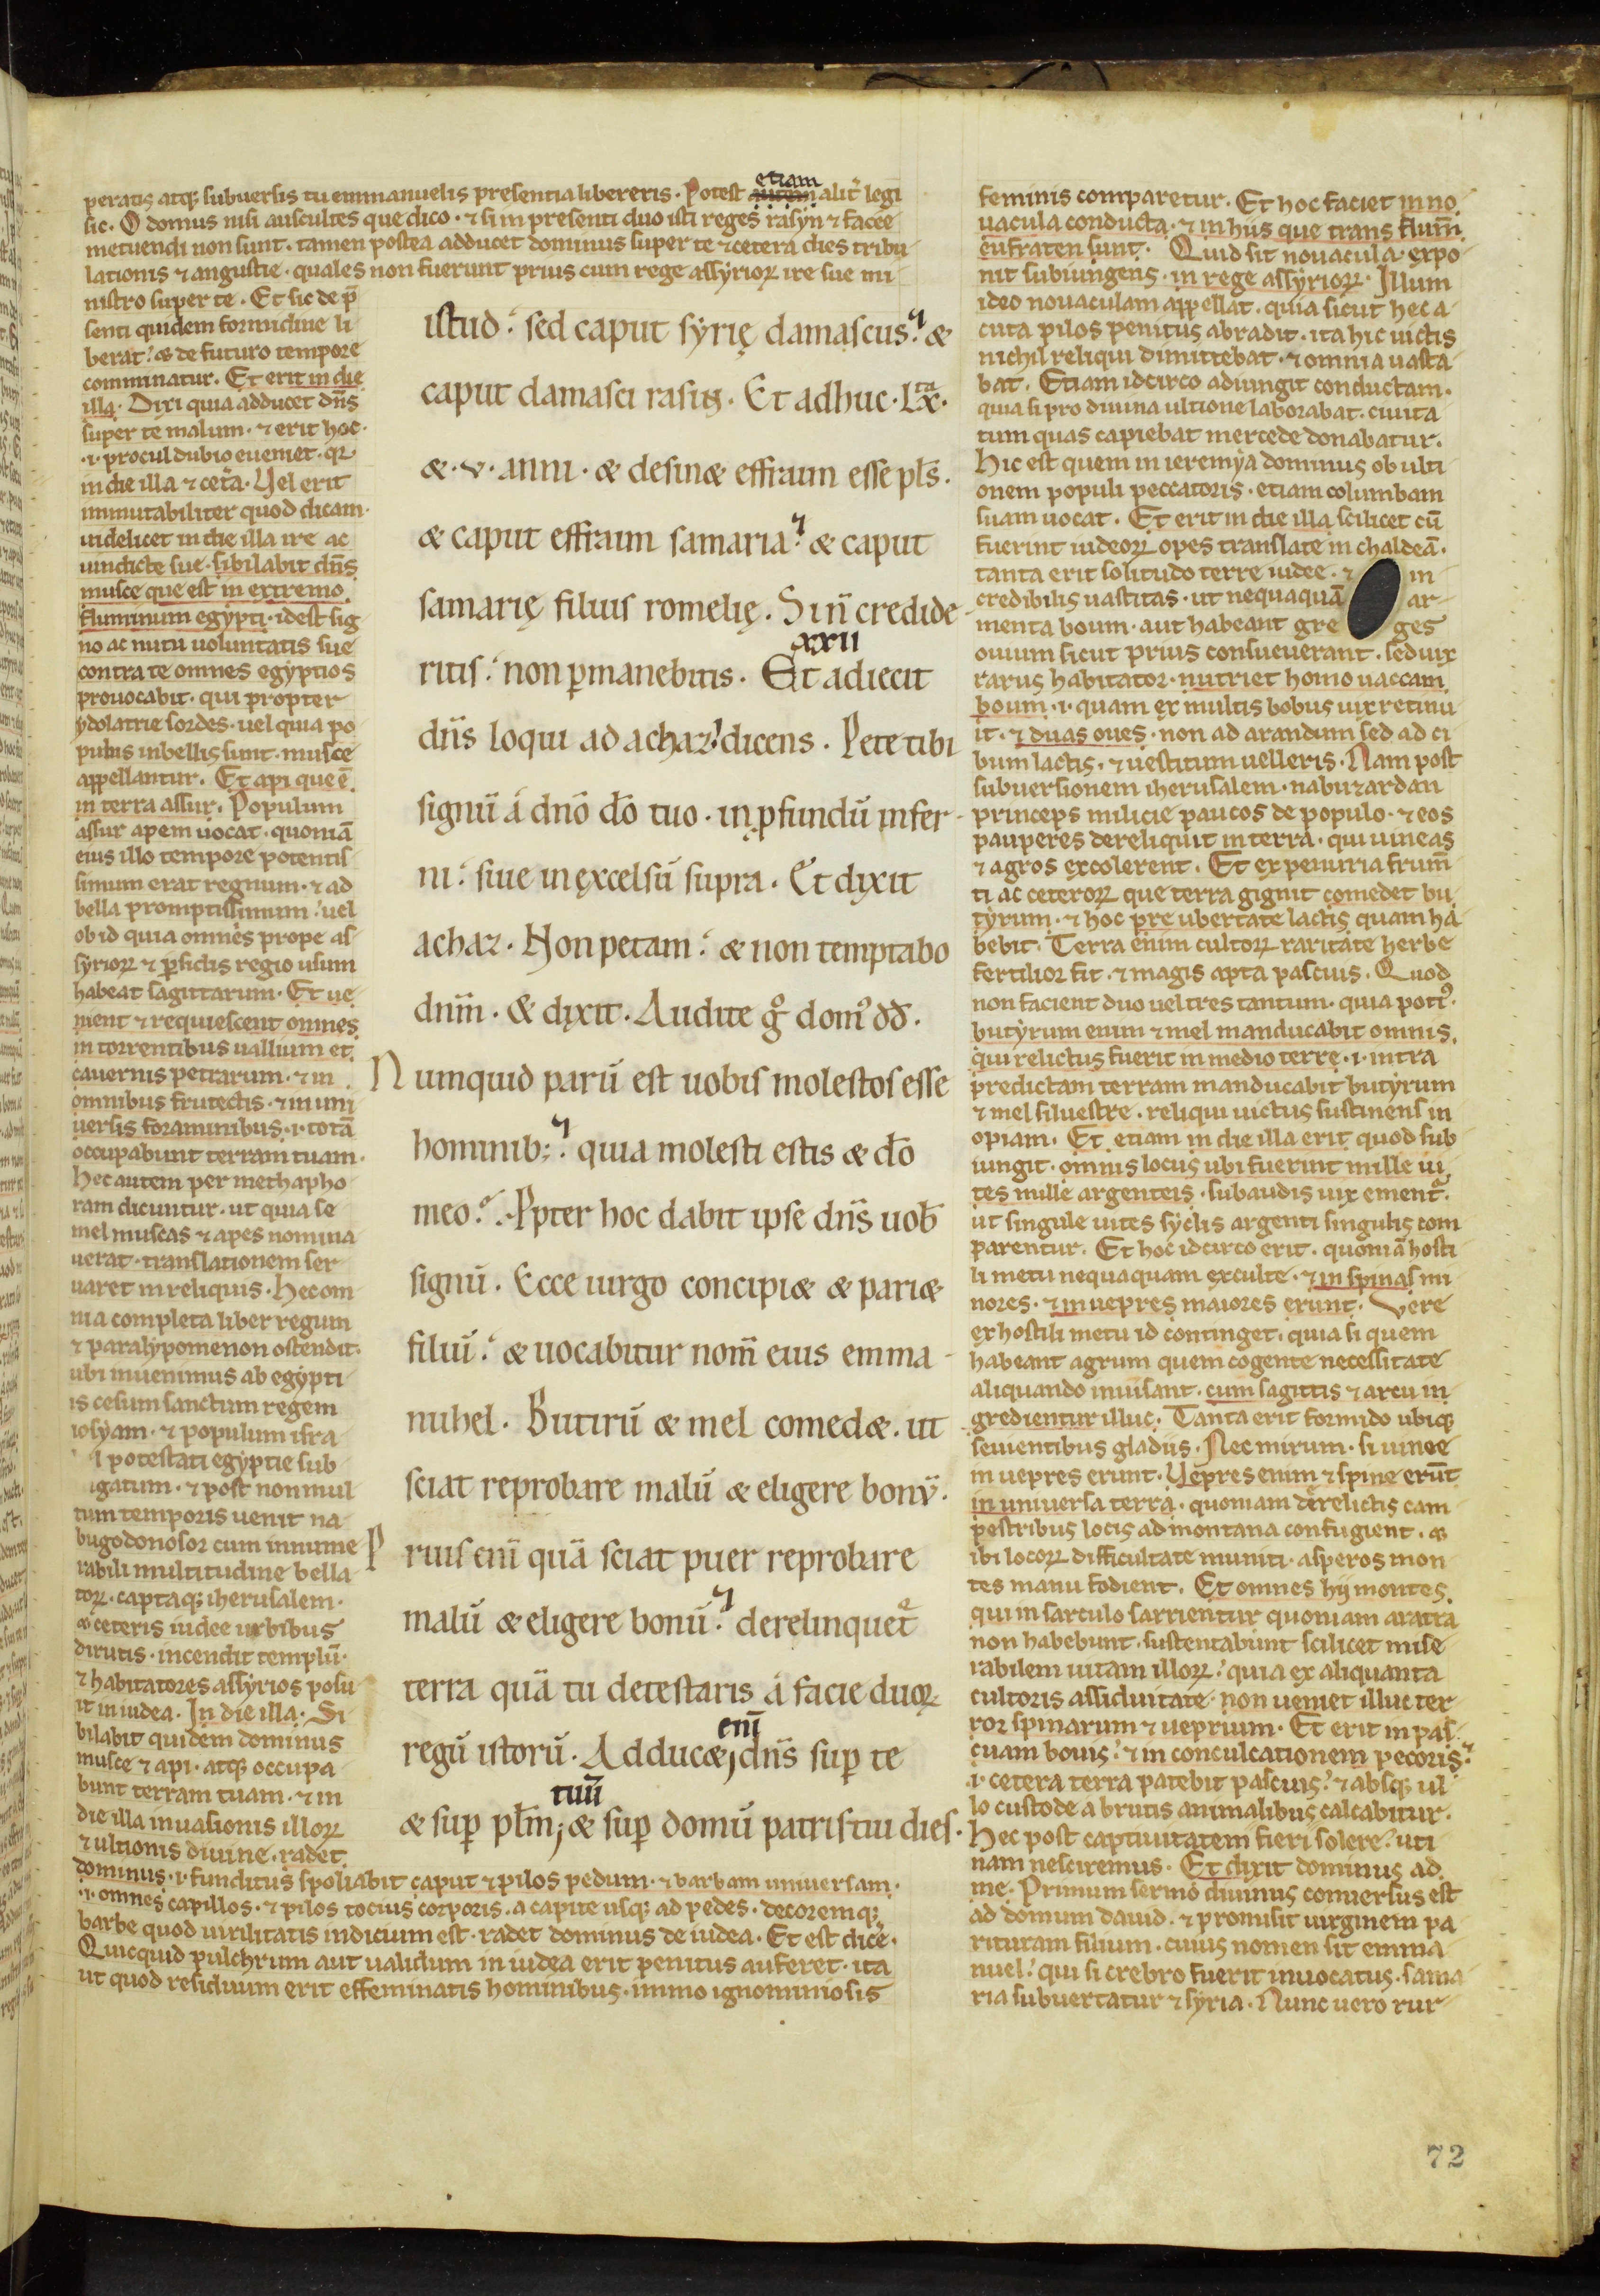 peratis atq; subuersis tu emmanuelis presentia libereris. Potest etiam alit̄ legi
sic. O domus nisi auscultes que dico. ⁊ si in presenti duo isti reges rasyn ⁊ facee
metuendi non sunt. tamen postea adducet dominus super te ⁊ cetera dies tribu
lationis ⁊ angustie. quales non fuerunt prius cum rege assyrioꝝ ire sue mi
nistro super te. Et sic de p̄
senti quidem formidine li
berat. & de futuro tempore
comminatur. Et erit in die
illa. Dixi quia adducet dn̄s
super te malum. ⁊ erit hoc.
.i. procul dubio eueniet. qꝛ
in die illa ⁊ cet̄a. Vel erit
immutabiliter quod dicam.
uidelicet in die illa ire ac
uindicte sue. sibilabit dn̄s
musce que est in extremo
fluminum egypti. idest sig
no ac nutu uoluntatis sue
contra te omnes egyptios
prouocabit. qui propter
ydolatrie sordes. uel quia po
pulus inbellis sunt. musce
appellantur. Et api que ē
in terra assur. Populum
assur apem uocat. quoniā
eius illo tempore potentis
simum erat regnum. ⁊ ad
bella promptissimum. uel
ob id quia omnes prope as
syrioꝝ ⁊ ꝑsidis regio usum
habeat sagittarum. Et ue
nient ⁊ requiescent omnes
in torrentibus uallium et
cauernis petrarum. ⁊ in
omnibus frutectis. ⁊ in uni
uersis foraminibus. i. totā
occupabunt terram tuam.
Hec autem per methapho
ram dicuntur. ut quia se
mel muscas ⁊ apes nomina
uerat. translationem ser
uaret in reliquis. Hec om
nia completa liber regum
⁊ paralypomenon ostendit.
ubi inuenimus ab egypti
is cesum sanctum regem
iosyam. ⁊ populum isra
l potestati egyptie sub
igatum. ⁊ post non mul
tum temporis uenit na
bugodonosor cum innume
rabili multitudine bella
toꝝ. captaq; iherusalem.
& ceteris iudee urbibus
dirutis. incendit templū.
⁊ habitatores assyrios posu
it in iudea. In die illa. Si
bilabit quidem dominus
musce ⁊ api. atq; occupa
bunt terram tuam. ⁊ in
die illa inuasionis illoꝝ
⁊ ultionis diuine. radet
dominus. i. funditus spoliabit caput ⁊ pilos pedum. ⁊ barbam uniuersam.
.i. omnes capillos. ⁊ pilos tocius corporis. a capite usq; ad pedes. decoremq;
barbe quod uirilitatis indicium est. radet dominus de iudea. Et est dice̅.
Quicquid pulchrum aut ualidum in iudea erit penitus auferet. ita
ut quod residuum erit effeminatis hominibus. immo ignominiosis
istud. sed caput syrię damascus. &
caput damasci rasin. Et adhuc. Lxͭᵃ.
&. v. anni. & desinæ effraim esse pl̄s.
& caput effraim samaria. & caput
samarię filius romelię. Si n̄ credide-
ritis. non ꝑmanebitis. xxii Et adiecit
dn̄s loqui ad achaz. dicens. Pete tibi
signū á dn̄o dō tuo. in ꝓfundū infer-
ni. siue in excelsū supra. Et dixit
achaz. Non petam. & non temptabo
dnm̄. & dixit. Audite gͦ domꝰ dd̄.
Numquid parū est uobis molestos esse
hominib;. quia molesti estis & dō
meo. Ꝓpter hoc dabit ipse dn̄s uob̄
signū. Ecce uirgo concipiæ & pariæ
filiū. & uocabitur nom̄ eius emma-
nuhel. Butirū & mel comedæ. ut
sciat reprobare malū & eligere bonū.
Prius eni̅ quā sciat puer reprobare
malū & eligere bonū. derelinquet̄
terra quā tu detestaris á facie duoꝝ
regū istorū. Adducæ eni̅ dn̄s suꝑ te
& suꝑ pl̄m tuū & suꝑ domū patris tui dies.
feminis comparetur. Et hoc faciet in no
uacula conducta. ⁊ in hiis que trans flum̄
eufraten sunt. Quid sit nouacula. expo
nit subiungens. in rege assyrioꝝ. Illum
ideo nouaculam appellat. quia sicut hec a
cuta pilos penitus abradit. ita hic uictis
nichil reliqui dimittebat. ⁊ omnia uasta
bat. Etiam idcirco adiungit conductam.
quia si pro diuina ultione laborabat. ciuita
tum quas capiebat mercede donabatur.
Hic est quem in ieremya dominus ob ulti
onem populi peccatoris. etiam columbam
suam uocat. Et erit in die illa scilicet cū
fuerint iudeoꝝ opes translate in chaldeā.
tanta erit solitudo terre iudee. ⁊ in
credibilis uastitas. ut nequaquā ar-
menta boum. aut habeant gre ges
ouium sicut prius consueuerant. sed uix
rarus habitator. nutriet homo uaccam
boum. i. quam ex multis bobus uix retinu
it. ⁊ duas oues. non ad arandum sed ad ci
bum lactis. ⁊ uestitum uelleris. Nam post
subuersionem iherusalem. nabuzardan
princeps milicie paucos de populo. ⁊ eos
pauperes dereliquit in terra. qui uineas
⁊ agros excolerent. Et ex penuria frum̄
ti ac ceteroꝝ que terra gignit comedet bu
tyrum. ⁊ hoc pre ubertate lactis quam ha
bebit. Terra enim cultoꝝ raritate herbe
fertilior fit. ⁊ magis apta pascuis. Quod
non facient duo uel tres tantum. quia potiꝰ.
butyrum enim ⁊ mel manducabit omnis
qui relictus fuerit in medio terre. i. intra
predictam terram manducabit butyrum
⁊ mel siluestre. reliqui uictus sustinens in
opiam. Et etiam in die illa erit quod sub
iungit. omnis locus ubi fuerint mille ui
tes mille argenteis. subaudis uix ement̄.
ut singule uites syclis argenti singulis com
parentur. Et hoc idcirco erit. quoniā hosti
li metu nequaquam exculte. ⁊ in spinas mi
nores. ⁊ in uepres maiores erunt. Vere
ex hostili metu id continget. quia si quem
habeant agrum quem cogente necessitate
aliquando inuisant. cum sagittis ⁊ arcu in
gredientur illuc. Tanta erit formido ubiq;
seuientibus gladiis. Nec mirum. si uinee
in uepres erunt. Vepres enim ⁊ spine erūt
in uniuersa terra. quoniam derelictis cam
pestribus locis ad montana confugient. &
ibi locoꝝ difficultate muniti. asperos mon
tes manu fodient. Et omnes hij montes
qui in sarculo sarrientur quoniam aratra
non habebunt. sustentabunt scilicet mise
rabilem uitam illoꝝ. quia ex aliquanta
cultoris assiduitate. non ueniet illuc ter
ror spinarum ⁊ ueprium. Et erit in pas
cuam bouis. ⁊ in conculcationem pecoris.
.i. cetera terra patebit pascuis. ⁊ absq; ul
lo custode a brutis animalibus calcabitur.
Hec post captiuitatem fieri solere. uti
nam nesciremus. Et dixit dominus ad
me. Primum sermo diuinus conuersus est
ad domum dauid. ⁊ promisit uirginem pa
rituram filium. cuius nomen sit emma
nuel. qui si crebro fuerit inuocatus. sama
ria subuertatur ⁊ syria. Nunc uero rur
72